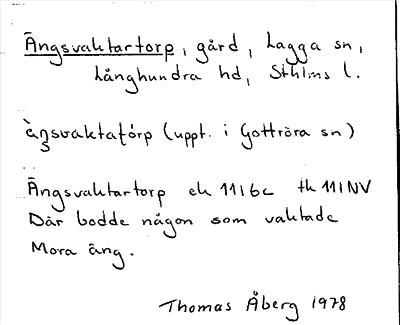 Ängsvaktartorp, gård, Lagga sn,
Långhundra hd, Sthlms l.
àŋsvaktatórp (uppt. i Gottröra sn)
Ängsvaktartorp ek 11I6c th 11INV
Där bodde någon som vaktade
Mora äng.
Thomas Åberg 1978